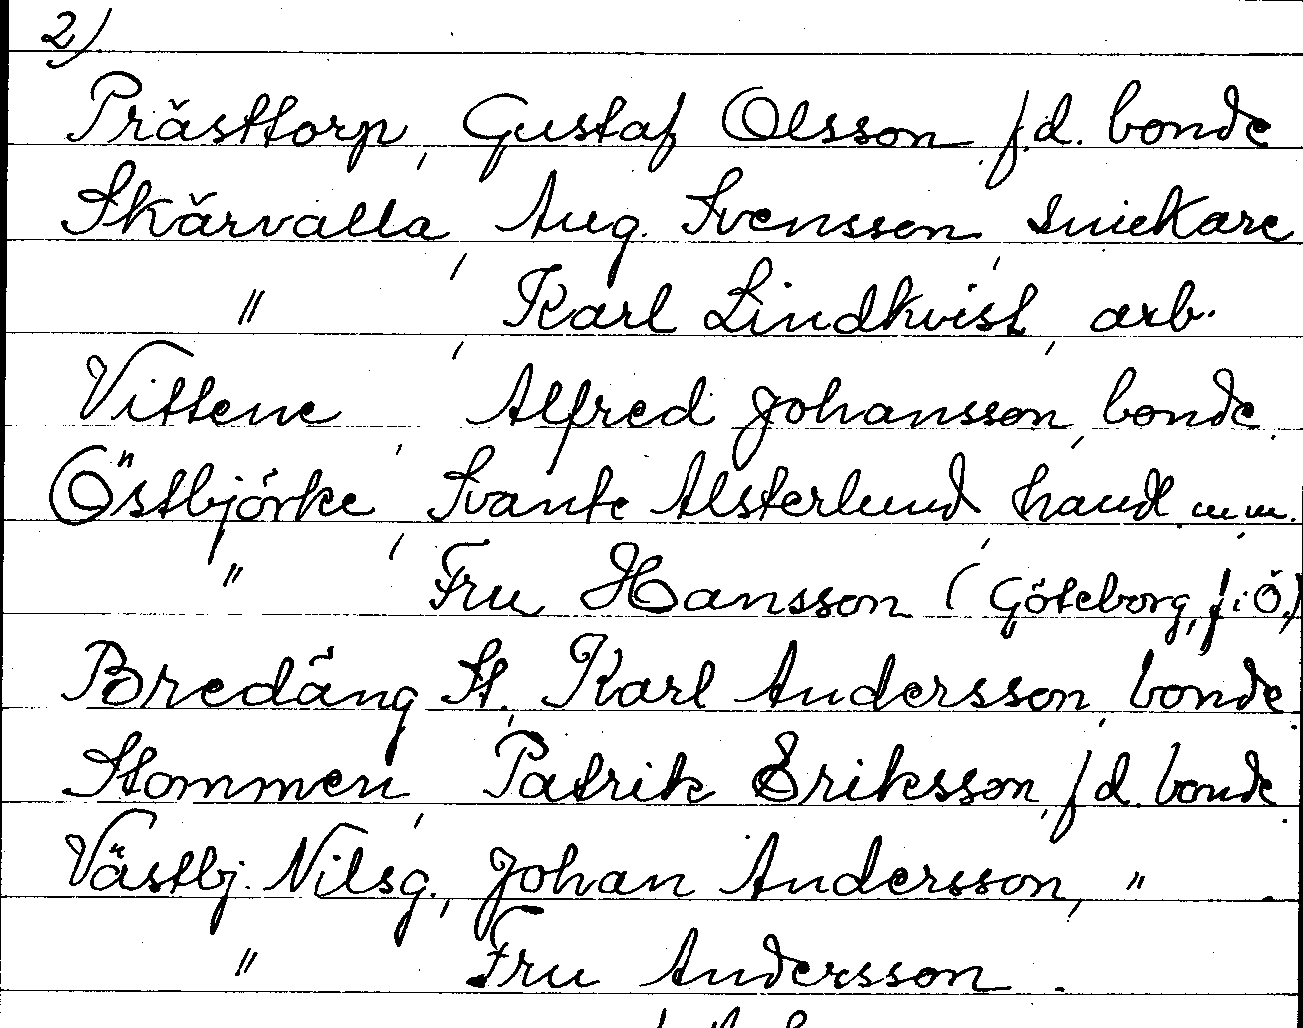 2)
Prästtorp, Gustaf Olsson f.d. bonde
Skärvalla, Aug. Svensson, snickare
" , Karl Lindkvist, arb.
Vittene, Alfred Johansson, bonde.
Östbjörke, Svante Alsterlund, handl. m.m.
" Fru Hansson (Göteborg, f. i Ö.)
Bredäng St., Karl Andersson, bonde.
Stommen, Patrik Eriksson, f.d. bonde.
Västbj. Nilsg., Johan Andersson, " .
" Fru Andersson.